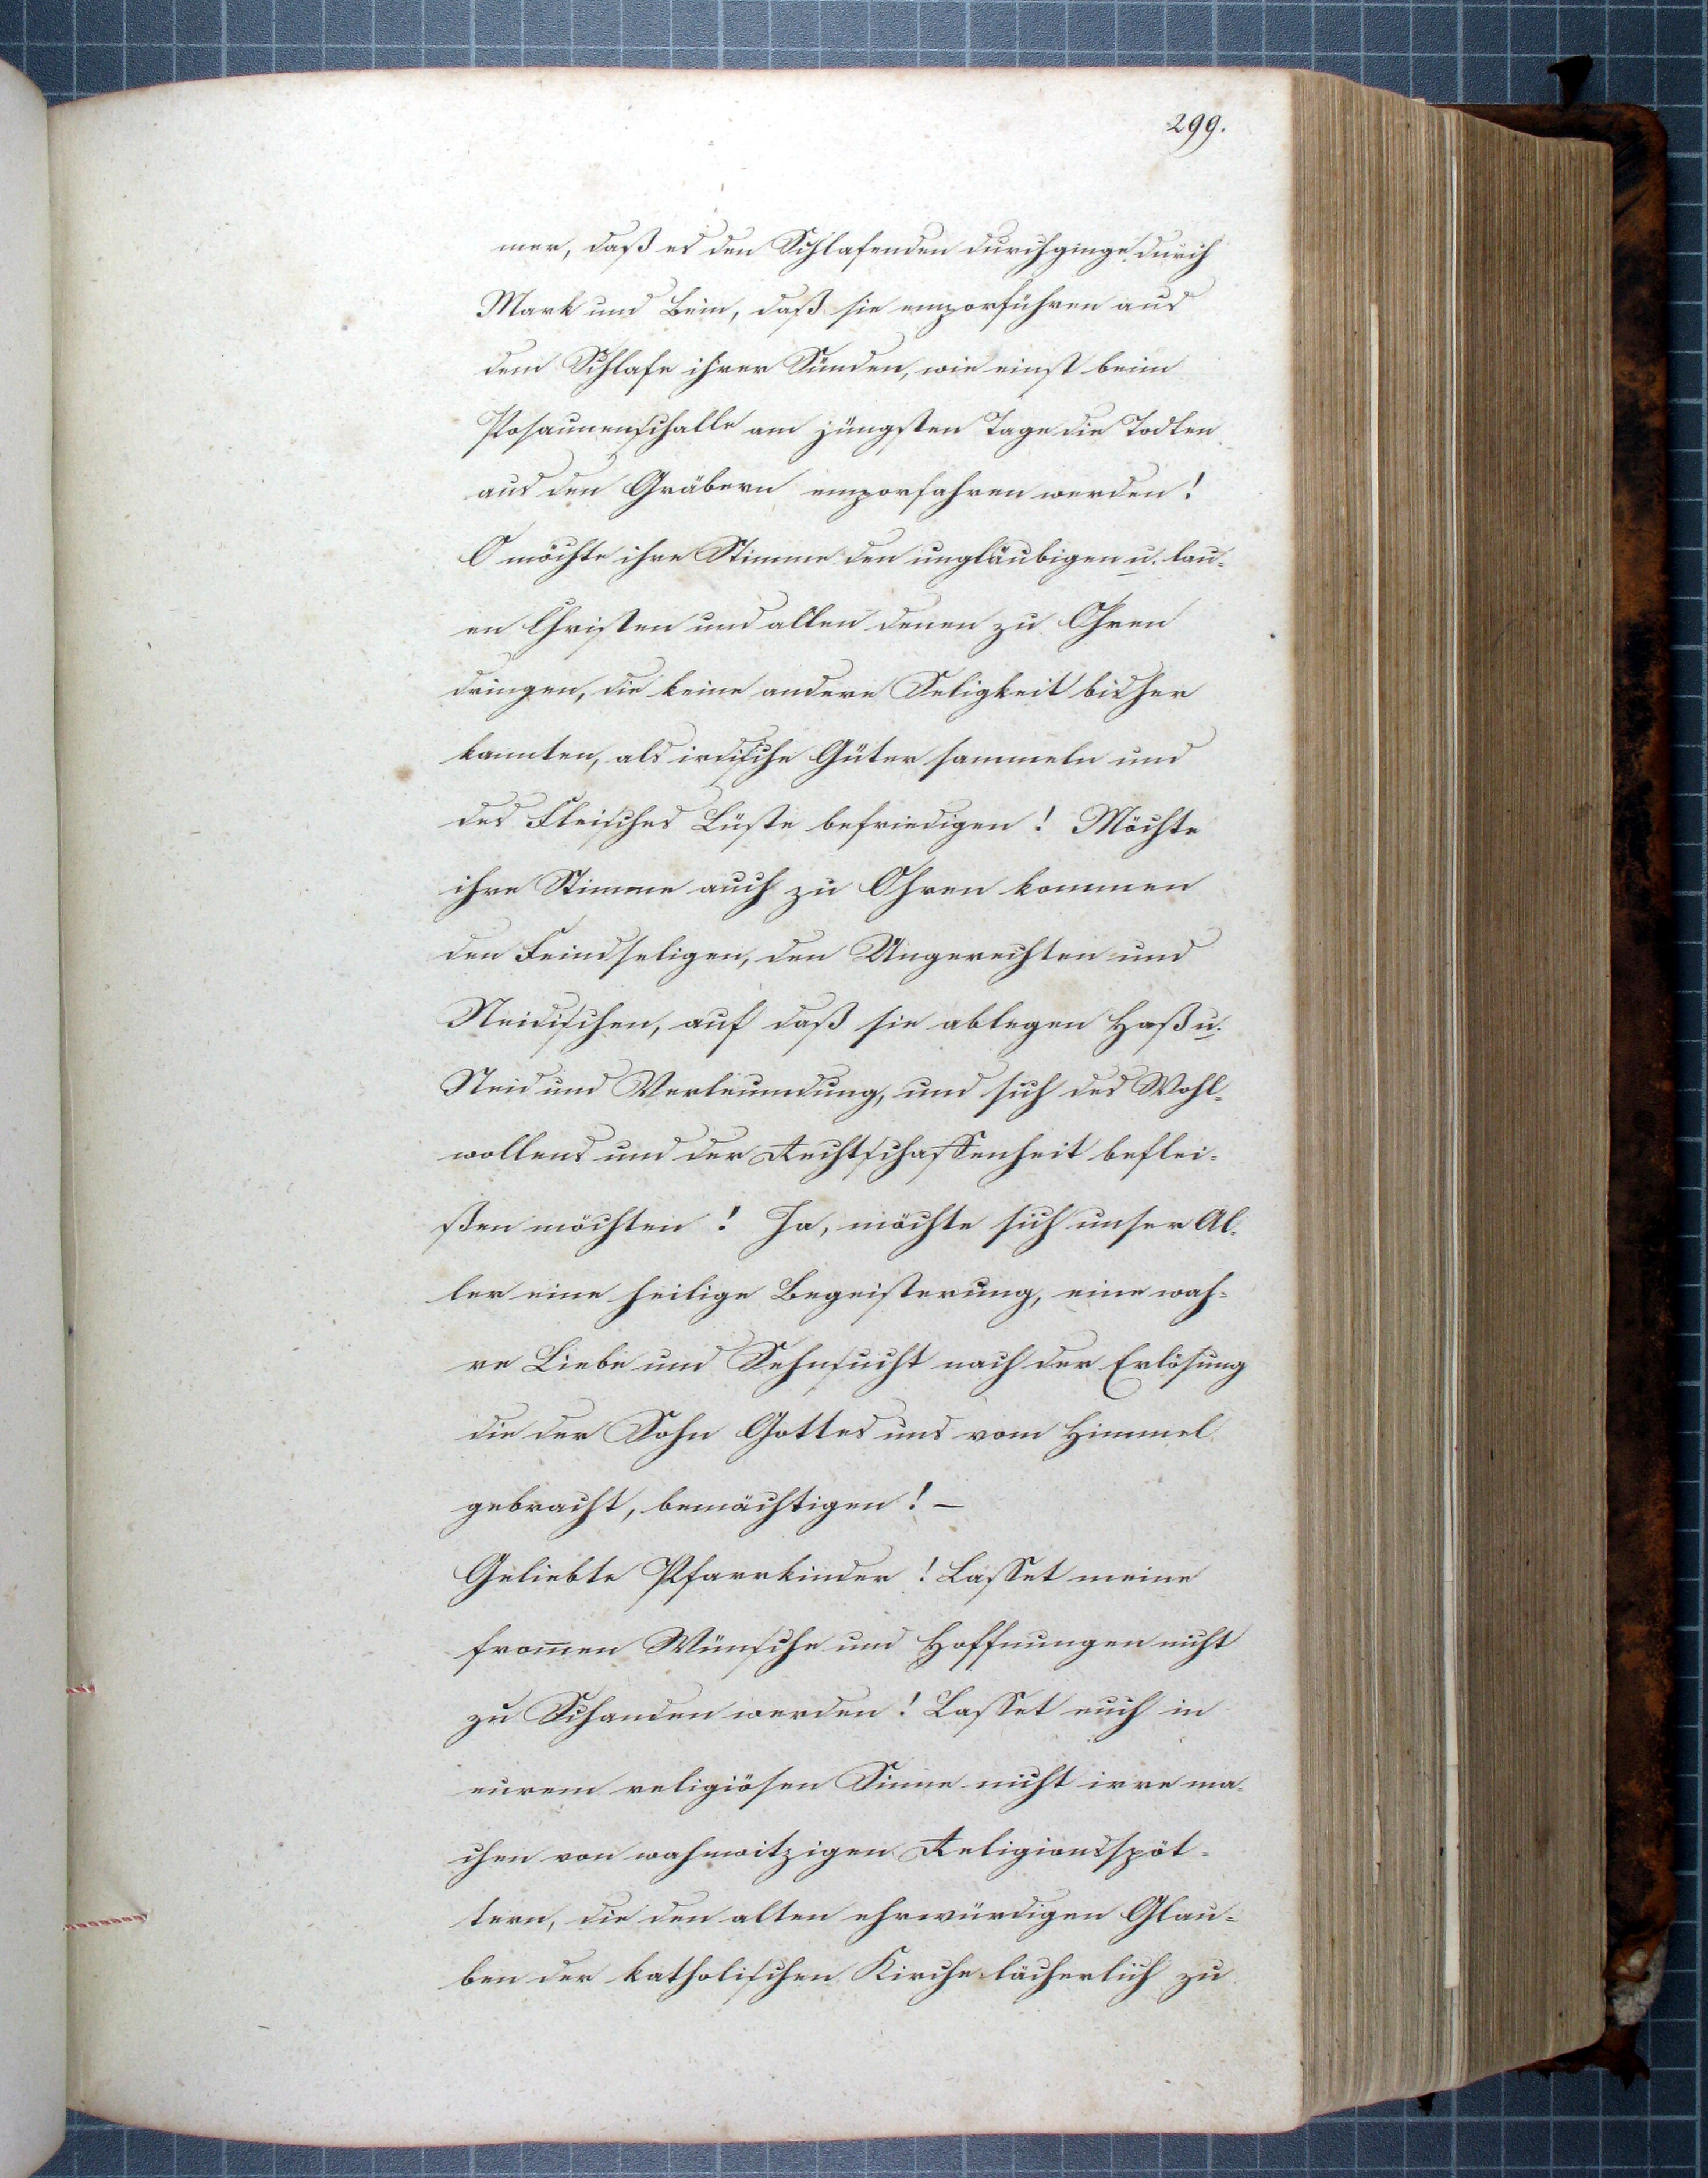 299.
mer, daß es den Schlafenden durchginge durch
Mark und Bein, daß sie emporführen aus
dem Schlafe ihrer Sünden, wie einst beim
Posaunenschalle am jüngsten Tage die Todten
aus den Gräbern emporfahren werden!
O möchte ihre Stimme den ungläubigen u. lau-
en Christen und allen denen zu Ohren
dringen, die keine andere Seligkeit bisher
kannten, als irdische Güter sammeln und
des Fleisches Lüste befriedigen! Möchte
ihre Stimme auch zu Ohren kommen
den Feindseligen, den Ungerechten und
Neidischen, auf daß sie ablegen Haß u.
Neid und Verleumdung, und sich des Wohl-
wollens und der Rechtschaffenheit beflei-
ßen möchten! Ja, möchte sich unser Al-
ler eine heilige Begeisterung, eine wah-
re Liebe und Sehnsucht nach der Erlösung
die der Sohn Gottes uns vom Himmel
gebracht, bemächtigen! –
Geliebte Pfarrkinder! Lasset meine
from̄en Wünsche und Hoffnungen nicht
zu Schanden werden! Lasset euch in
eurem religiösen Sinne nicht irre ma-
chen von wahnwitzigen Religionsspöt-
tern, die den alten ehrwürdigen Glau-
ben der katholischen Kirche lächerlich zu